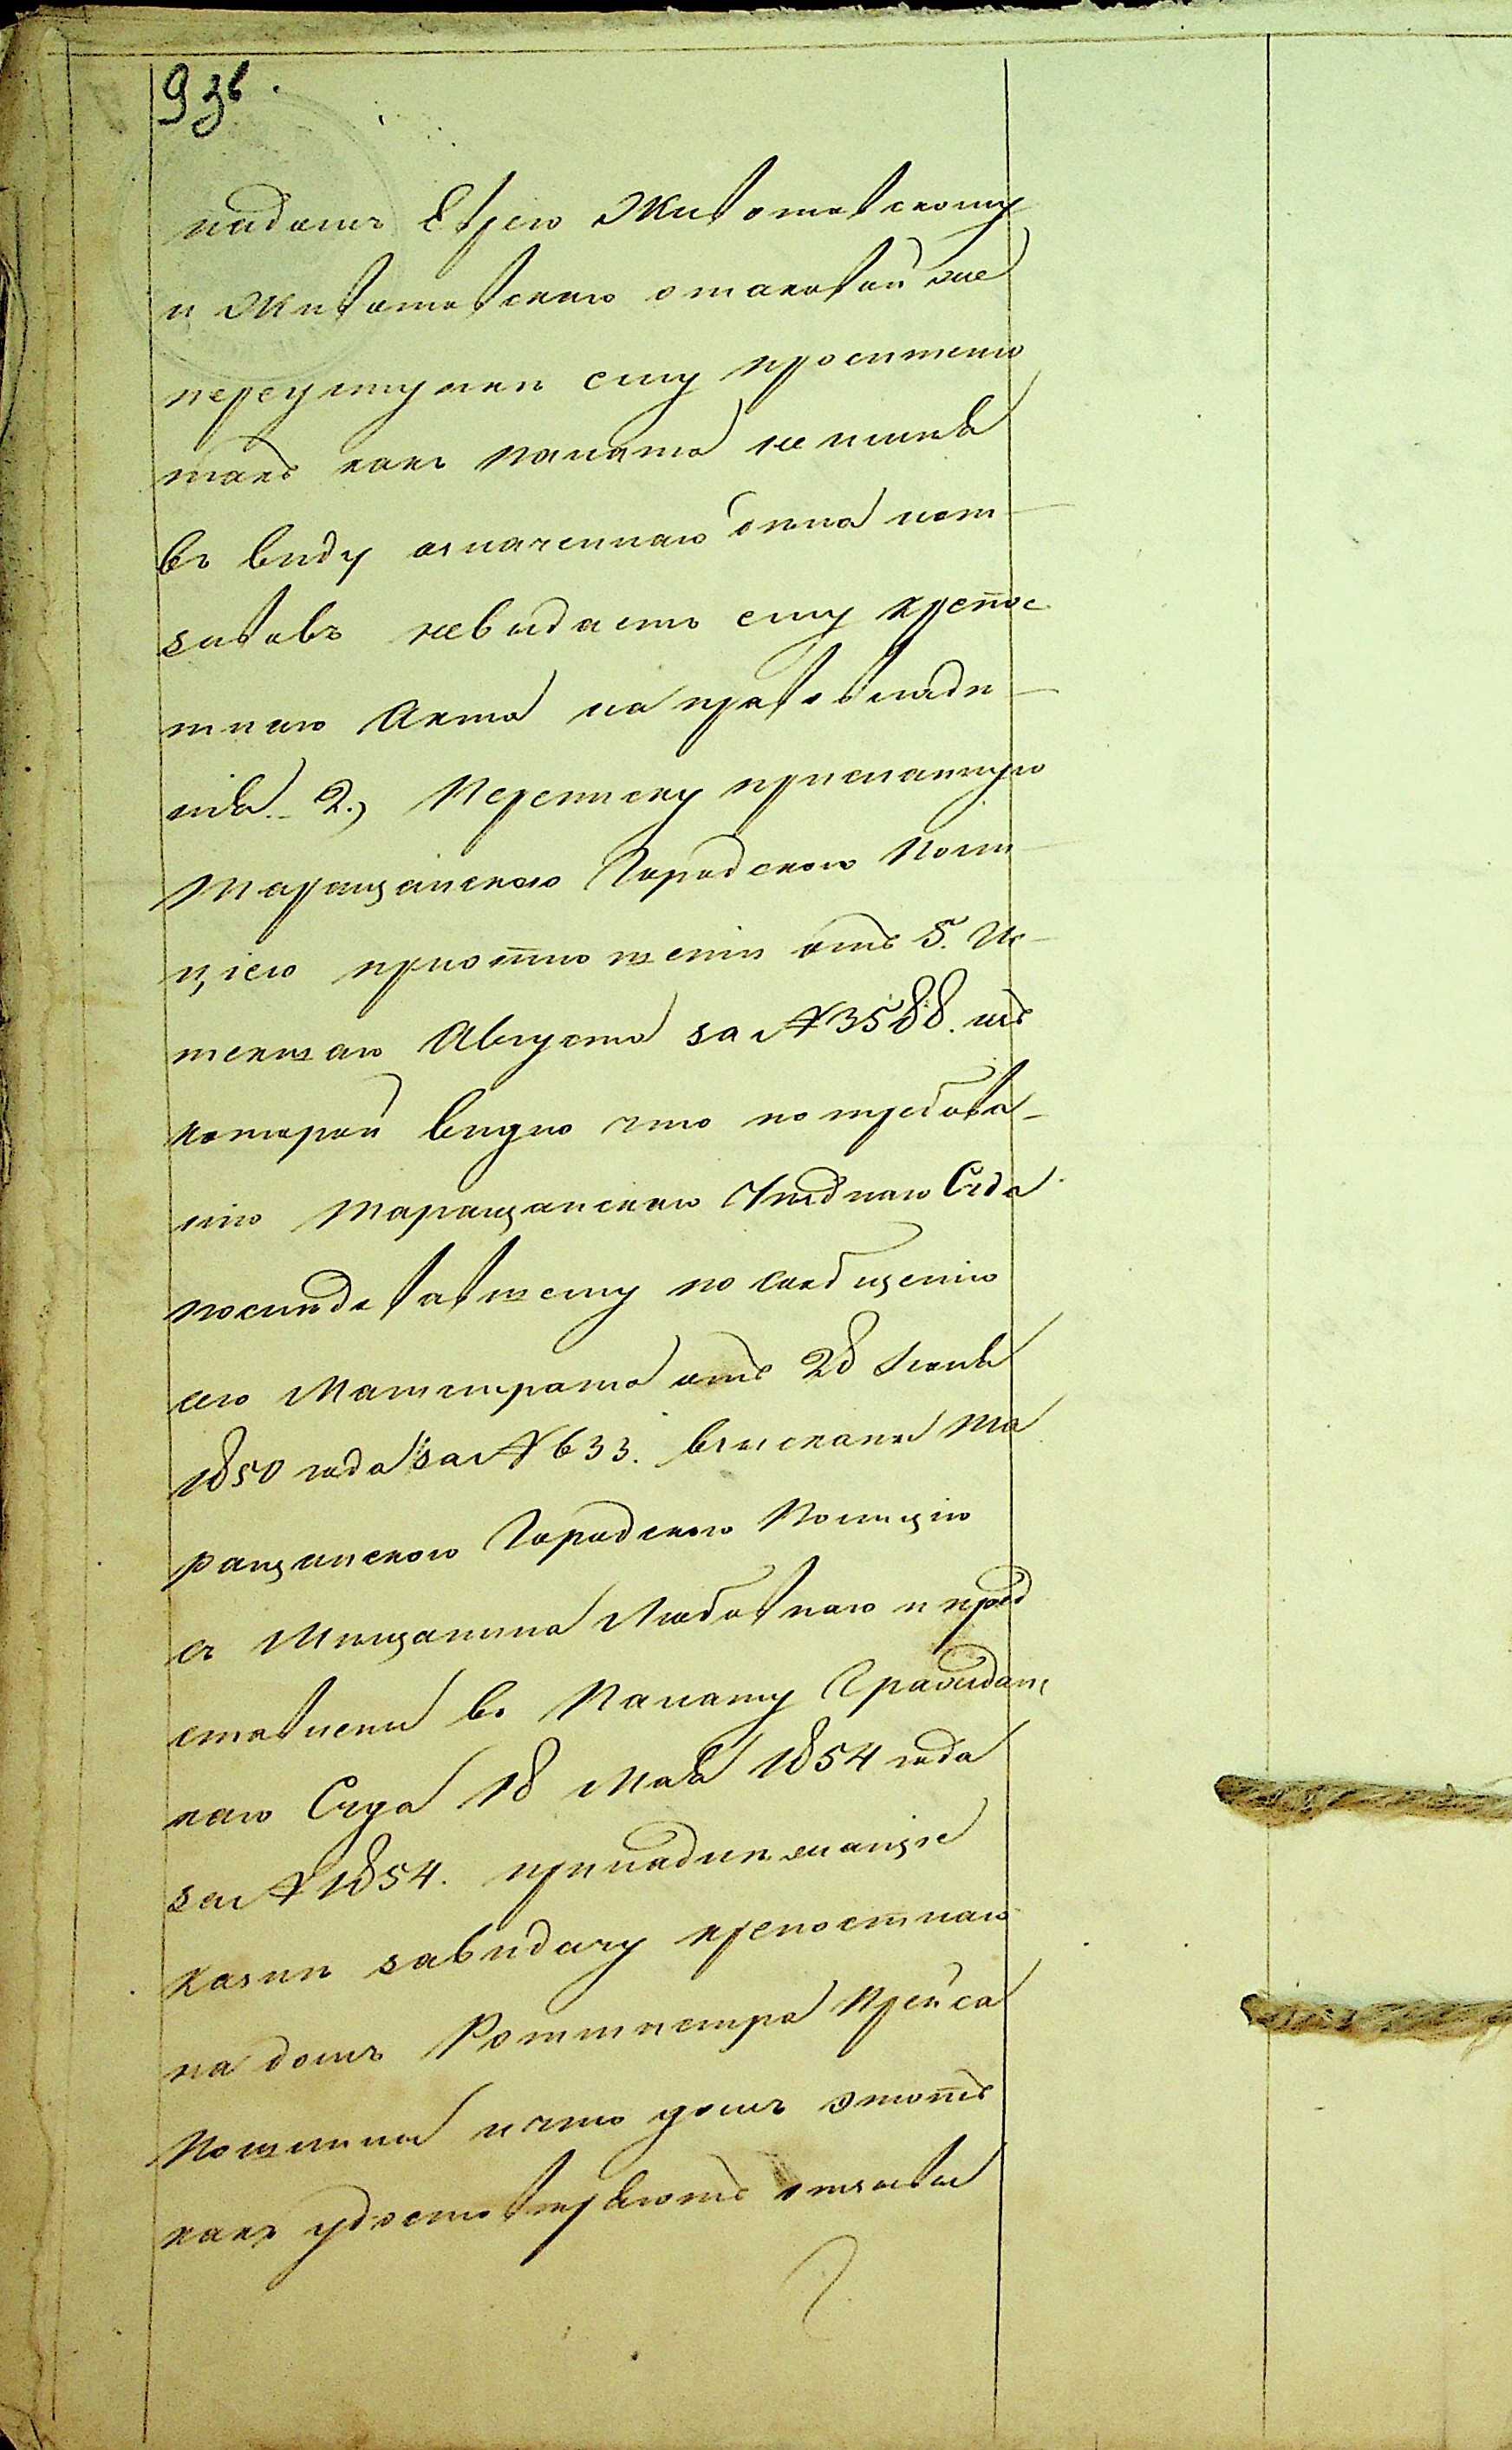 93б.
надомъ Еврею Животовскому
и Животовскаго отаковой же
переуступки ему просителю
такъ какъ Палата не имѣя
въ виду означеннаго
невыдаетъ ему крепос
тнаго Акта на право владѣ-
нія. 2., Переписку присланную
Таращанскою Городскою Поли-
ціею приотношеніи отъ 5. Ис-
текшаго Августа за № 3588. изъ
которой видно что по требова-
нію Таращанскаго Уѣзднаго Суда
последовавшему по сообщенію
сего Магистрата отъ 28 Іюля
1850 года за № 633. взысканы Та
ращанскою Городскою Полиціею
съ Мещанина и пред
ставлены въ Палату Гражданс
каго Суда 18 Мая 1854 года
за № 1854. принадлежащіе
казнѣ завыдачу крепостнаго
на домъ Ротмистра Прейса
Пошлины ичто домъ этотъ
какъ удостовѣряютъ